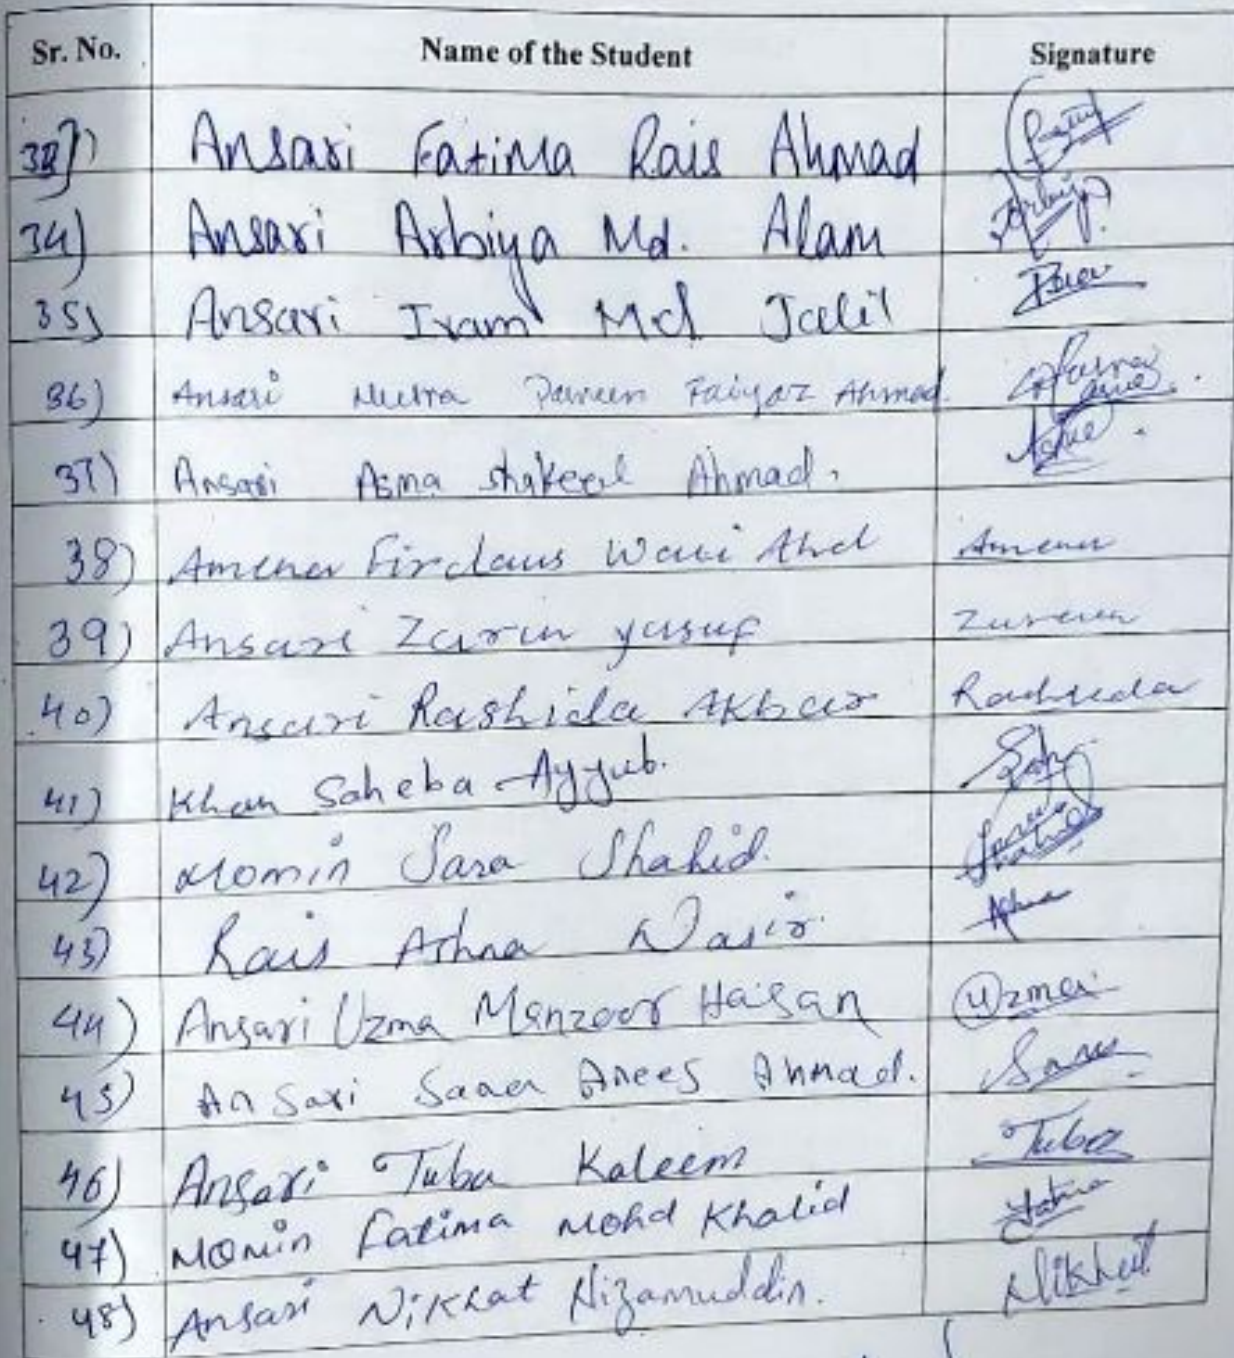 Sr. No. Name of the Student Signature
Ansari Fatima Rais Ahmad
34) Ansari Arbiya Md. Alam Arbiya
35) Ansari Iram Md Jalil
36) Ansari Parveen Faiyaz Ahmad.
37) Ansari Asma Shakeel Ahmad.
38) Amena Firdaus Ahd Amena
39) Ansari Zarin yusuf
40) Ansari Rashida Akbar Rasheeda
41) Khan Saheba Ayyub.
42) Momin Sara Shahid.
43) Rais Ashna Nasir.
44) Ansari Uzma Manzoor Hassan Uzma
45) Ansari Sana Anees Ahmad. Sana
46) Ansari Tuba Kaleem Tuba
47) Momin Fatima Mohd Khalid
48) Ansari Nikhat Nizamuddin. Nikhat